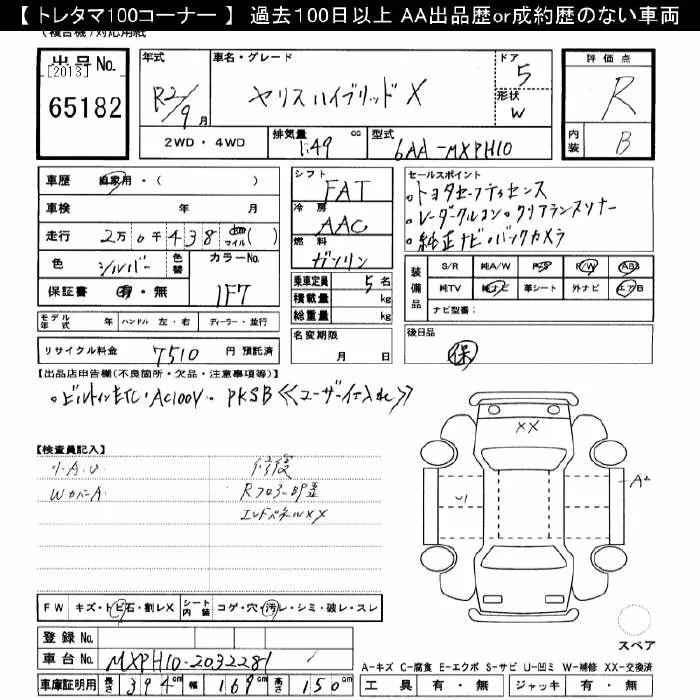 【 トレタマ100コーナー 】 過去100日以上 AA出品歴or成約歴のない車両
(複合機)対応用紙
出品No.
[2013]
65182
年式
R2/9月
車名・グレード
ヤリスハイブリッド X
ドア 5
形状 W
評価点
R
内装 B
2WD・4WD
排気量 1.49 cc
型式 6AA-MXPH10
車歴 自家用・( )
車検 年 月
走行 2万0千438 km マイル ( )
色 シルバー
色替
カラーNo. 1F7
保証書 有・無
シフト FAT
冷房 AAC
燃料 ガソリン
乗車定員 5 名
積載量 kg
総重量 kg
セールスポイント
。トヨタセーフティセンス
。レーダークルコン。クリアランスソナー
。純正ナビ。バックカメラ
装備品
S/R 純A/W P/S P/W ABS
純TV 純ナビ 革シート 外ナビ エアB
ナビ型番:
モデル年式 年 ハンドル 左・右 ディーラー・並行
名変期限 月 日
後日品
保
リサイクル料金 7510 円 預託済
【出品店申告欄(不良箇所・欠品・注意事項等)】
。ビルトインETC・AC100V・PKSB 《ユーザー仕入れ》
【検査員記入】
リ・A・U
WカバーA
修復
Rフロアー凹歪
エンドパネルXX
XX
U1
A2
FW キズ・トビ石・割レX
シート内装 コゲ・穴・汚レ・シミ・破レ・スレ
登録 No.
車台 No. MXPH10-2032281
車庫証明用 長さ 394 cm 幅 169 cm 高さ 150 cm
スペア
A-キズ C-腐食 E-エクボ S-サビ U-凹ミ W-補修 XX-交換済
工具 有・無 ジャッキ 有・無